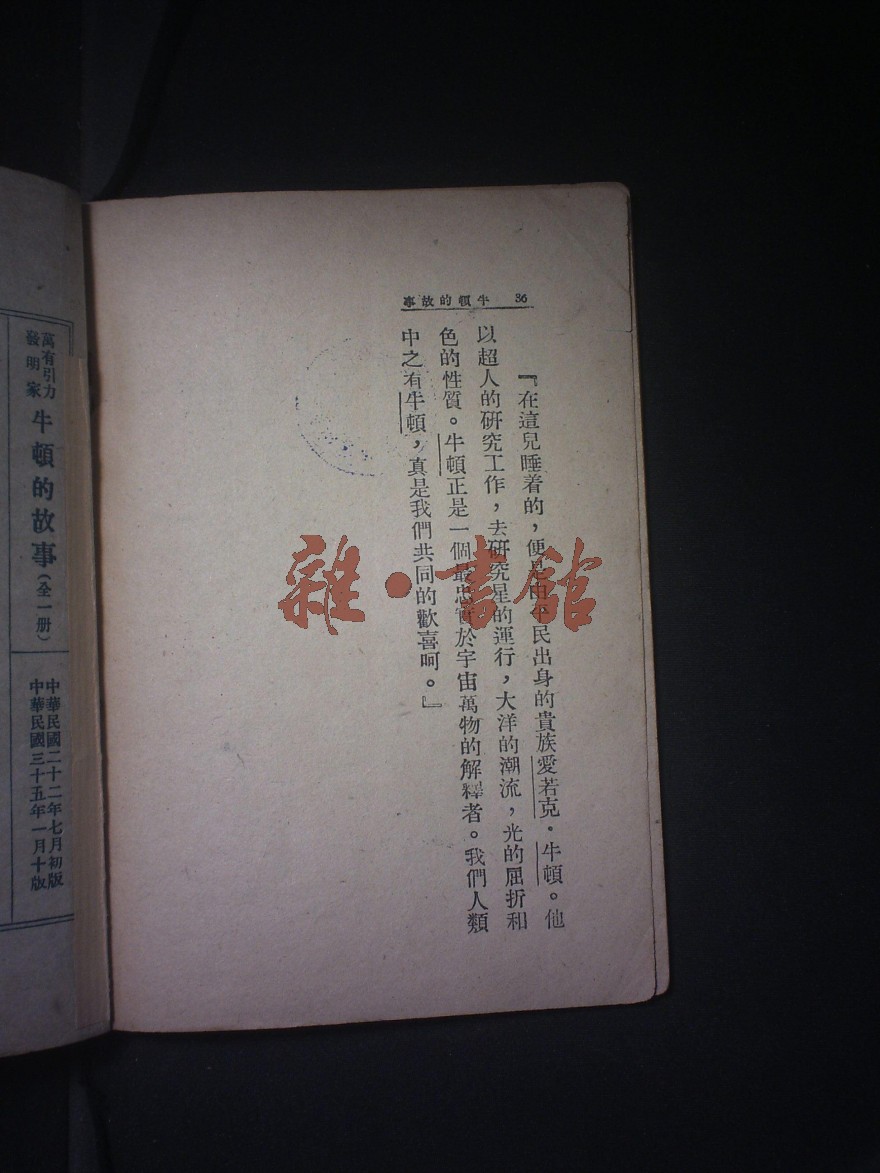 36 牛頓的故事
『在這兒睡着的，便是由平民出身的貴族愛若克．牛頓。他
以超人的硏究工作，去硏究星的運行，大洋的潮流，光的屈折和
色的性質。牛頓正是一個最忠實於宇宙萬物的解釋者。我們人類
中之有牛頓，真是我們共同的歡喜呵。』
雜·書館
中華民國二十二年七月初版
中華民國三十五年一月十版
萬有引力
發明家
牛頓的故事（全一册）